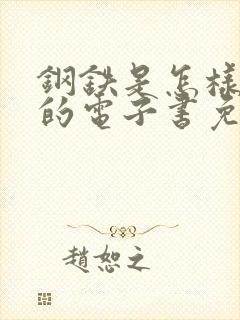 鋼鉄是怎樣
的電子書免
趙恕之